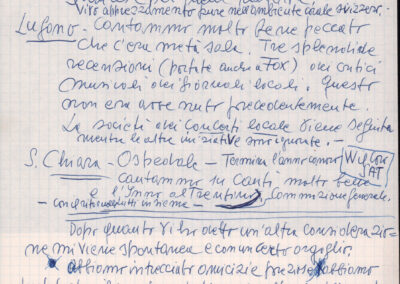 vivo apprezzamento pure nell'ambiente corale svizzero.
Lugano - Cantammo molto bene peccato
che c'era metà sala. Tre splendide
recensioni (portate anche a Fox) dei critici
musicali dei giornali locali. Questo
non era avvenuto precedentemente.
La società dei Concerti locale viene seguita
mentre le altre iniziative sono
S. Chiara - Ospedale - Termina l'anno
W il Coro SAT
cantammo su Canti molto bene
e l'Inno al Trentino. Commozione generale.
tutti insieme
Dopo quanto vi ho detto un'altra considerazio-
ne mi viene spontanea e con un certo orgoglio,
abbiamo intrecciato amicizie preziose abbiamo